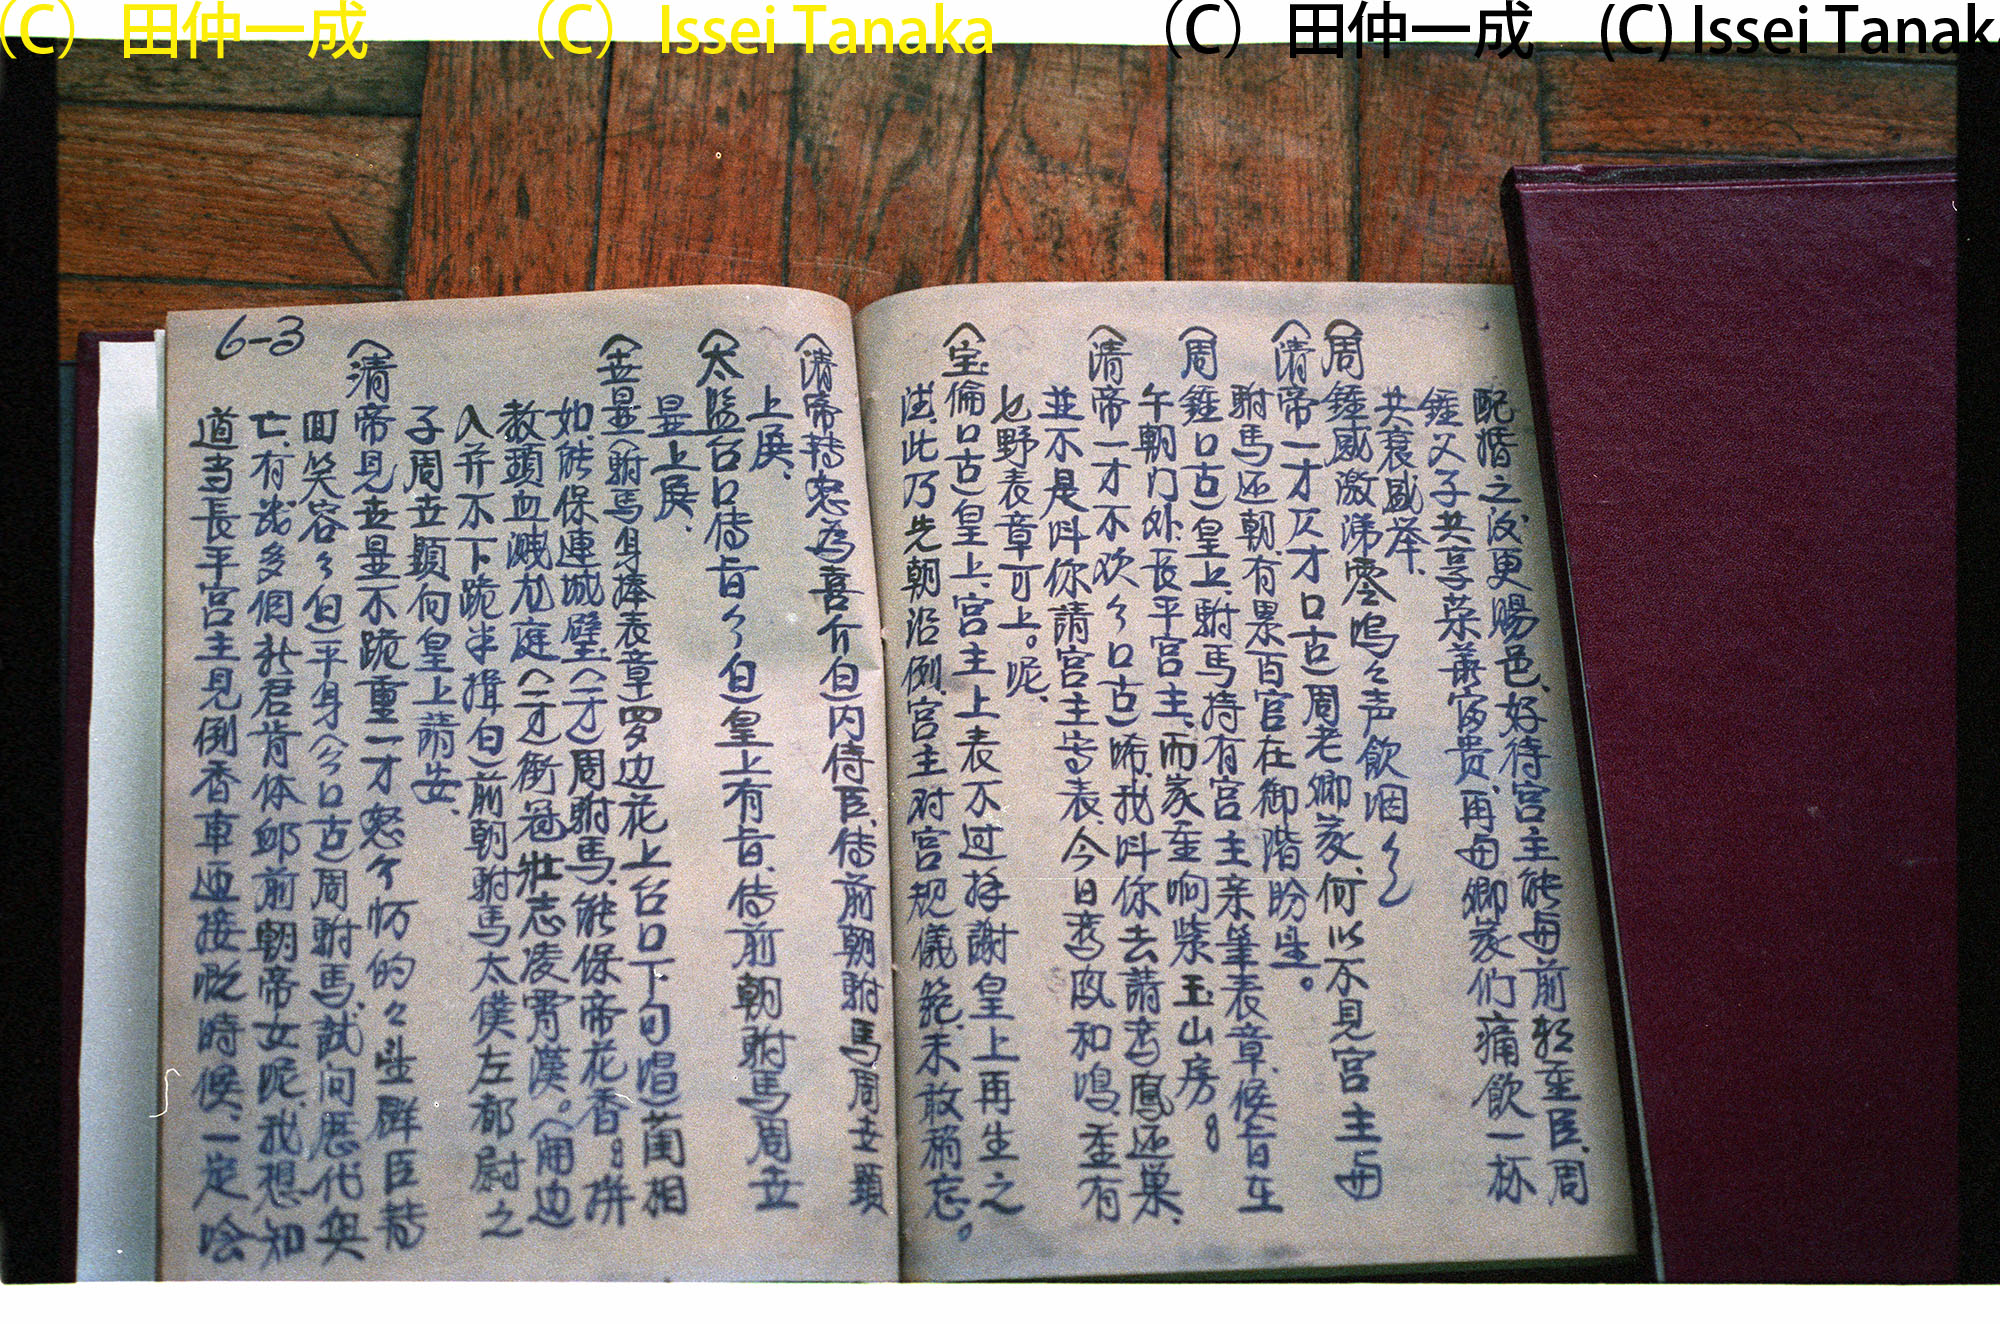 (C) 田仲一成 (C) Issei Tanaka (C) 田仲一成 (C) Issei Tanaka
配婚之後更賜邑、好待宮主能每前朝重臣、周
鍾父子共享荣華富贵、再每卿家们痛飲一杯
共衰感举、
(周鍾感激涕零嗚々声飲泪
(清帝一才仄才口古)周老卿家、何以不見宮主每
駙馬还朝、有累百官在御階盼望。
(周鍾口古)皇上、駙馬持有宮主亲筆表章、候旨在
午朝门外、長平宮主、而家重响紫玉山房。
(清帝一才不欢介口古)唏、我叫你去請鸾鳳还巢、
並不是叫你請宮主寄表、今日鸾凤和鳴、重有
乜野表章可上。呢、
(宝倫口古)皇上、宮主上表不过拜謝皇上再生之
德、此乃先朝沿例、宮主对宮規儀範、未敢稍忘。
(清帝轉怒為喜介白)内侍臣、传前朝駙馬周世顕
上殿、
(太監台口传旨介白)皇上有旨、传前朝駙馬周世
显上殿、
(世显(駙馬身捧表章)罗边花上台口下句唱)蔺相
如、能保連城壁、(一才)周駙馬、能保帝花香。拼
教頭血溅龙庭(一才)衝冠壮志凌霄漢。(埋边
入并不下跪半揖白)前朝駙馬太僕左都尉之
子周世顕向皇上請安、
(清帝見世显不跪重一才怒介怲的々望群臣轉
回笑容介白)平身(介口古)周駙馬、試问歷代興
亡、有幾多個新君肯体郎前朝帝女呢、我想知
道当長平宮主見倒香車迎接既時候、一定哙
6-3